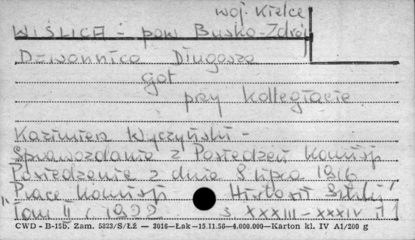 woj. Kielce
WIŚLICA - pow. Busko-Zdrój
Dzwonnica Długosza
Got
przy kollegiacie
Kazimierz Wyczyński -
Sprawozdanie z Posiedzeń Komisji
Posiedzenie z dnia 8 lipca 1916
"Prace Komisji Historii Sztuki"
Tom II, 1922 s XXXIII-XXXIV
CWD - B-15b. Zam. 5223/S/ŁŻ — 3016—Łak—15.11.56—4.000.000—Karton kl. IV A1/200 g